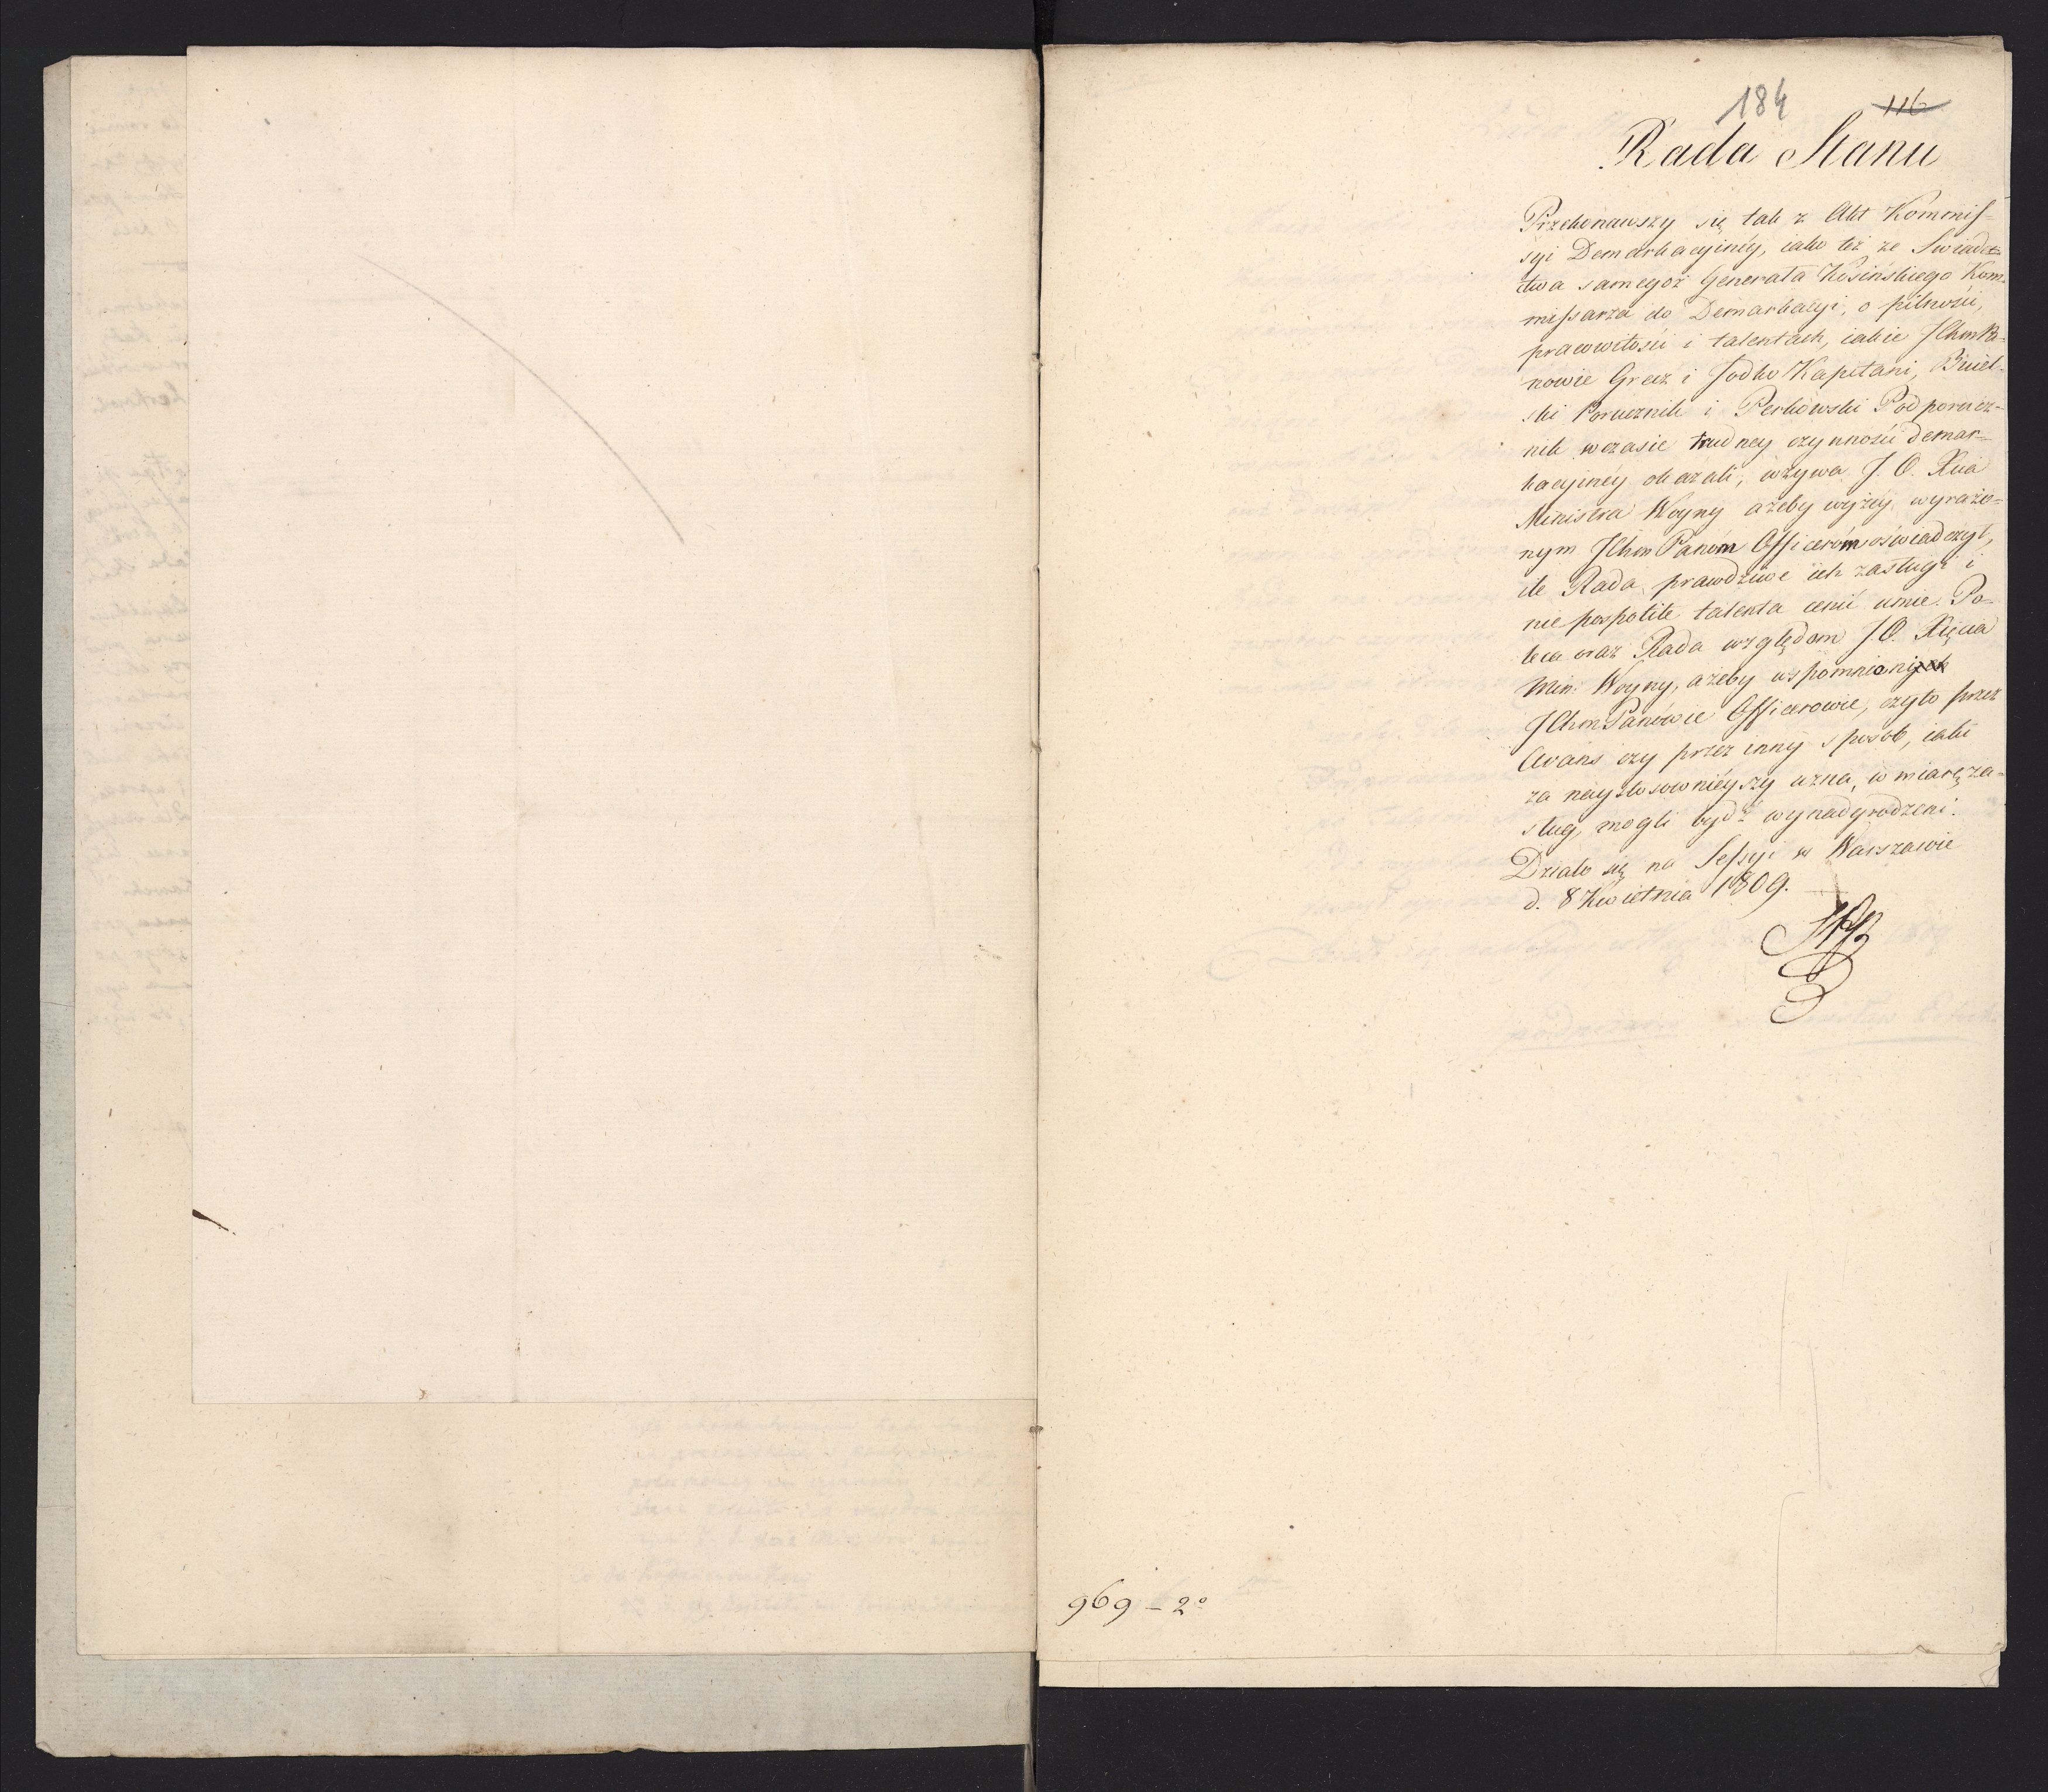 184 116
Rada Stanu
Przekonawszy się tak z Akt Kommis-
syi Demarkacyinéy, iako też ze Swiade-
ctwa samegoż Generała Kosińskiego Kom-
missarza do Demarkacyi, o pilności,
pracowitości i talentach, iakie JchmPa-
nowie Grecz i Jodko Kapitani, Bniel-
ski Porucznik i Perkowski Podporucz-
nik wczasie trudney czynności demar-
kacyinéy okazali, wzywa J. O. Xcia
Ministra Woyny ażeby wyżéy wyrażo-
nym Jchm Panom Officerom oświadczył,
ile Rada prawdziwe ich zasługi i
niepospolite talenta cenić umie. Po-
leca oraz Rada względom J. O. Xięcia
Min: Woyny, ażeby wspomnionych
JchmPanowie Officerowie, czyto przez
Avans czy przez inny sposób, iaki
za naystosownieyszy uzna, w miarę za-
sług, mogli bydź wynadgrodzeni.
Działo się na Sessyi w Warszawie
d. 8 Kwietnia 1809.
969 – 2°